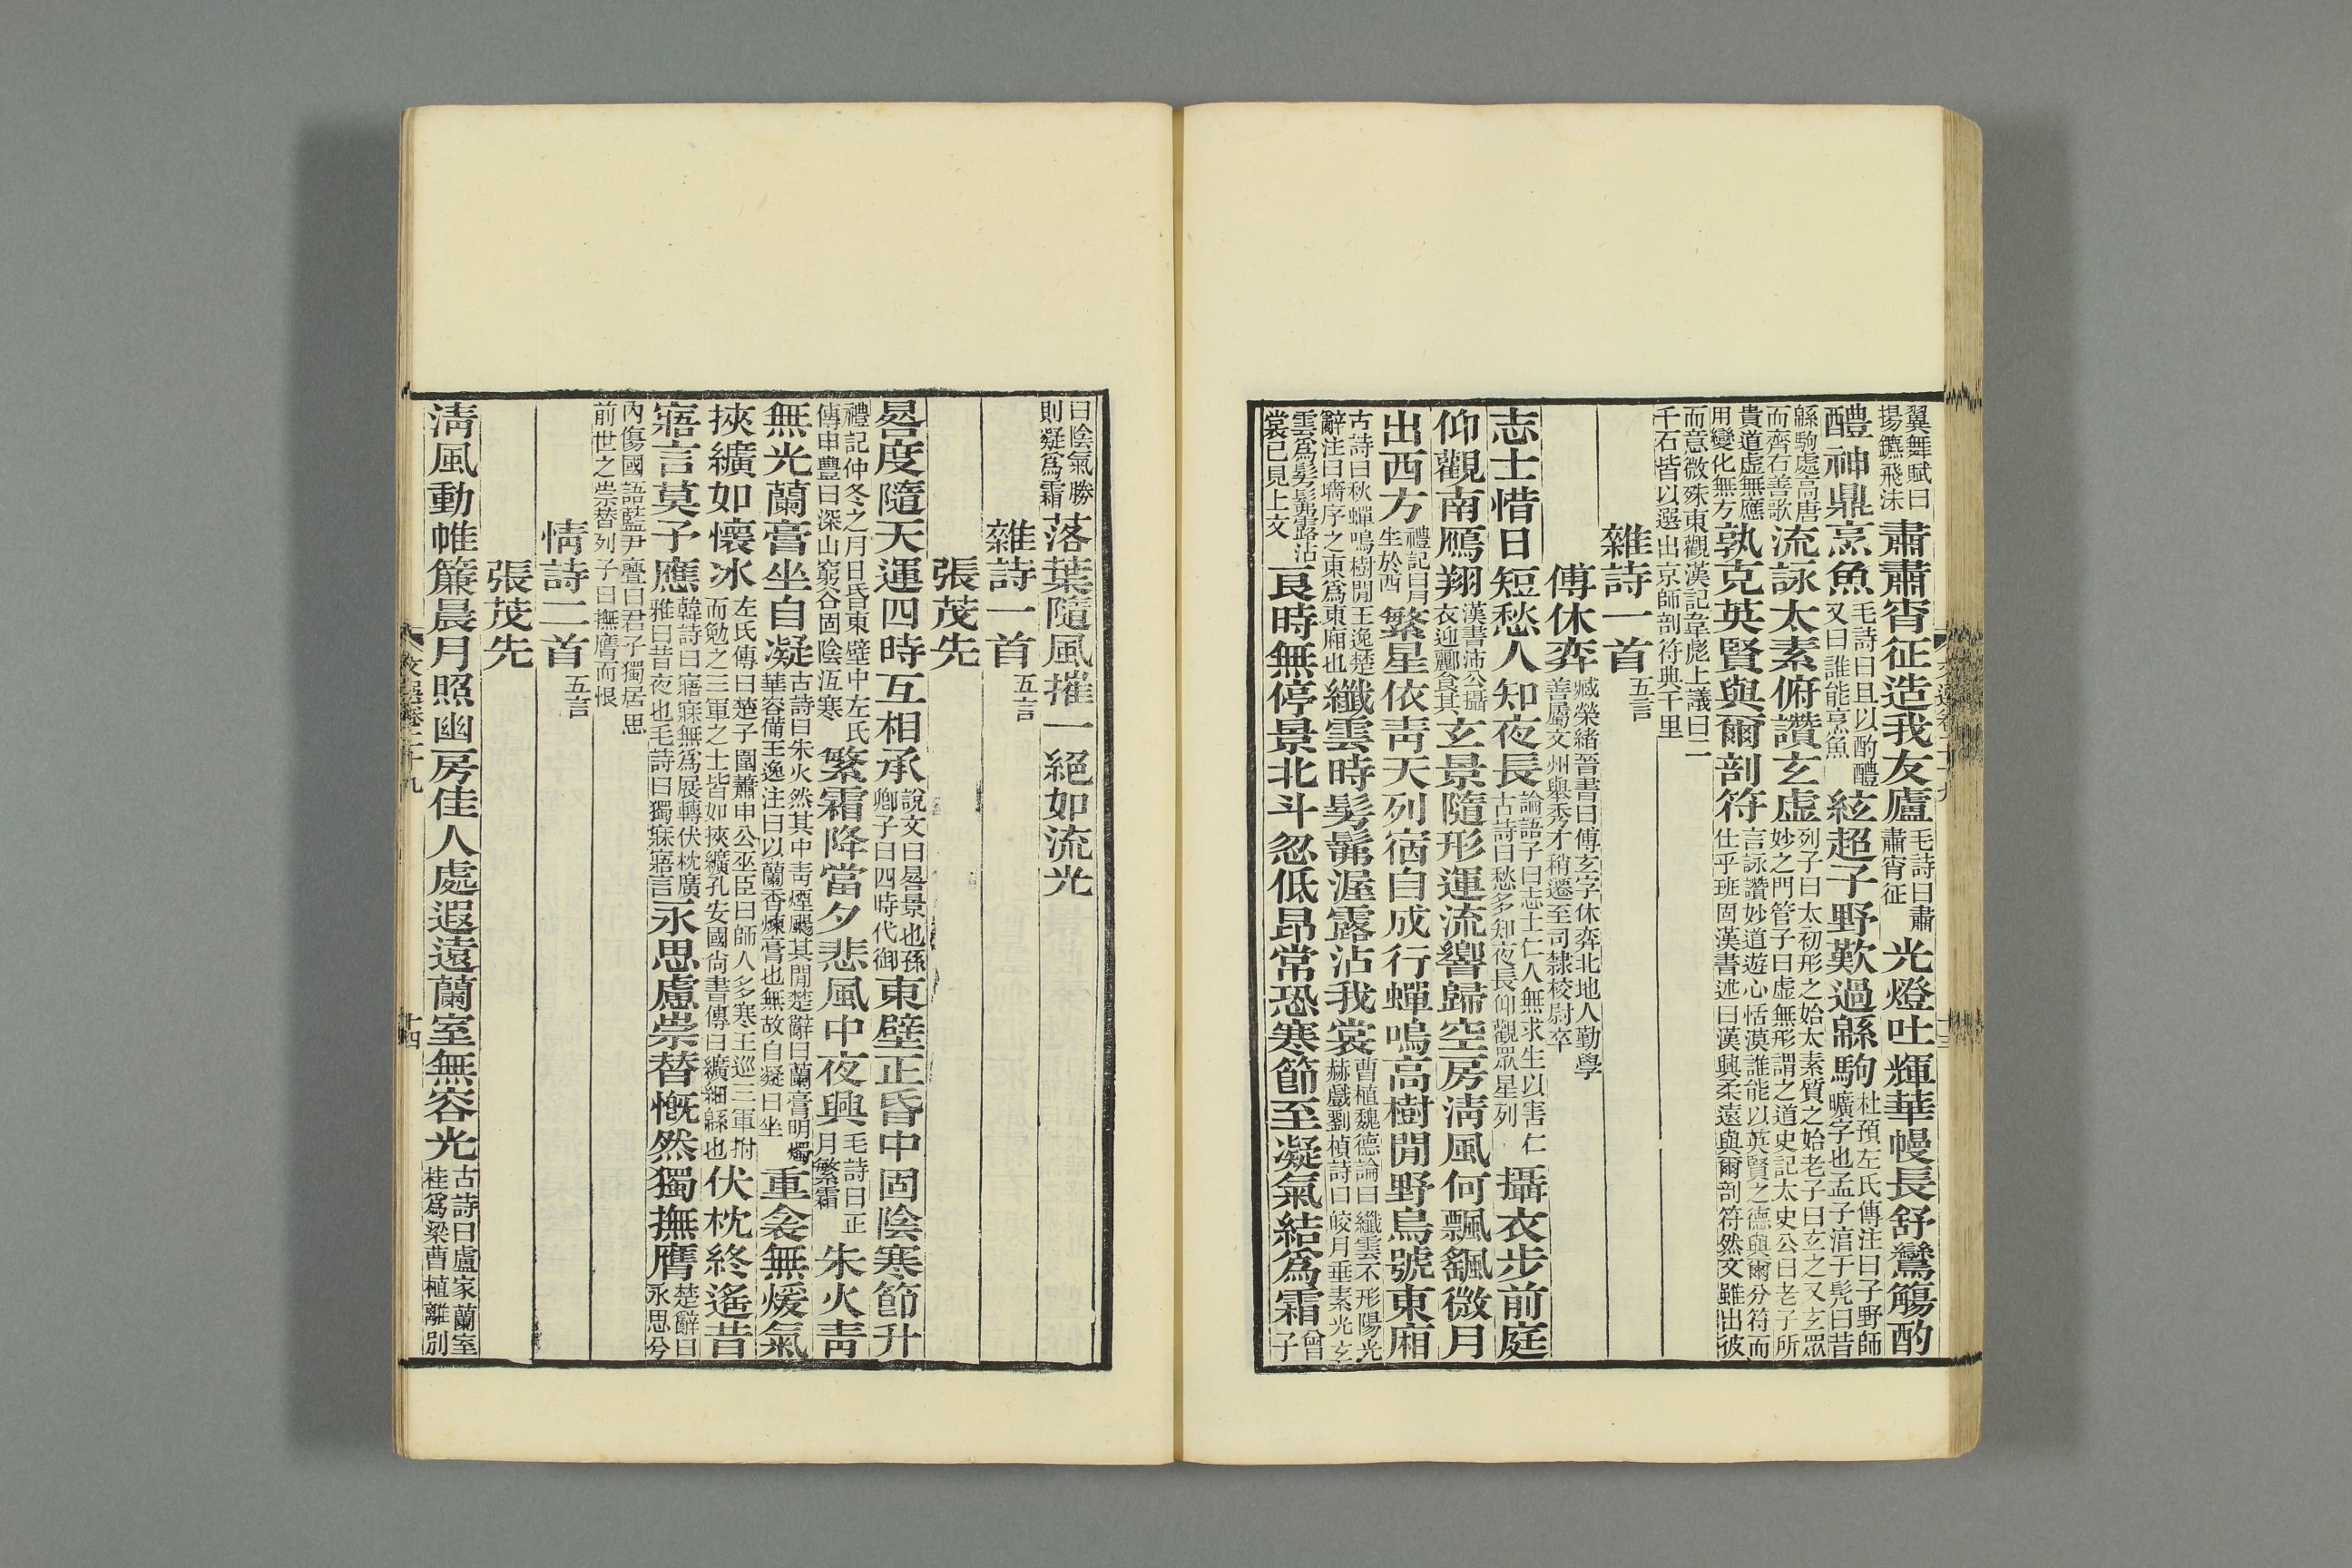 翼舞賦曰揚鑣飛沬肅肅宵征造我友廬毛詩曰肅肅宵征光燈吐輝華幔長舒鸞觴酌
醴神鼎烹魚毛詩曰且以酌醴又曰誰能烹魚絃超子野歎過緜駒杜預左氏傳注曰子野師曠字也孟子淳于髡曰昔
緜駒處高唐而齊右善歌流詠太素俯讚玄虛列子曰太初形之始太素質之始老子曰玄之又玄眾妙之門管子曰虛無形謂之道史記太史公曰老子所
貴道虛無應用變化無方孰克英賢與爾剖符言詠讚妙道遊心恬漠誰能以英賢之德與爾分符而仕乎班固漢書述曰漢興柔遠與爾剖符然文雖出彼
而意微殊東觀漢記韋彪上議曰二千石皆以選出京師剖符典千里
雜詩一首五言
傅休弈臧榮緒晉書曰傅玄字休弈北地人勤學善屬文州舉秀才稍遷至司隸校尉卒
志士惜日短愁人知夜長論語子曰志士仁人無求生以害仁古詩曰愁多知夜長仰觀眾星列攝衣步前庭
仰觀南鴈翔漢書沛公攝衣迎酈食其玄景隨形運流響歸空房清風何飄颻微月
出西方禮記曰月生於西繁星依青天列宿自成行蟬鳴高樹閒野鳥號東廂
古詩曰秋蟬鳴樹閒王逸楚辭注曰墻序之東爲東廂也纖雲時髣髴渥露沾我裳曹植魏德論曰纖雲不形陽光赫戲劉楨詩曰皎月垂素光玄
雲爲髣髴露沾裳已見上文良時無停景北斗忽低昂常恐寒節至凝氣結爲霜曾子
曰陰氣勝則凝爲霜落葉隨風摧一絕如流光
雜詩一首五言
張茂先
晷度隨天運四時互相承說文曰晷景也孫卿子曰四時代御東壁正昏中固陰寒節升
禮記仲冬之月日昏東壁中左氏傳申豐曰深山窮谷固陰沍寒繁霜降當夕悲風中夜興毛詩曰正月繁霜朱火青
無光蘭膏坐自凝古詩曰朱火然其中青煙颺其閒楚辭曰蘭膏明燭華容備王逸注曰以蘭香煉膏也無故自凝曰坐重衾無煖氣
挾纊如懷冰左氏傳曰楚子圍蕭申公巫臣曰師人多寒王巡三軍拊而勉之三軍之士皆如挾纊孔安國尚書傳曰纊細緜也伏枕終遙昔
寤言莫予應韓詩曰寤寐無爲展轉伏枕廣雅曰昔夜也毛詩曰獨寐寤言永思慮崇替慨然獨撫膺楚辭曰永思兮
內傷國語藍尹亹曰君子獨居思前世之崇替列子曰撫膺而恨
情詩二首五言
張茂先
清風動帷簾晨月照幽房佳人處遐遠蘭室無容光古詩曰盧家蘭室桂爲梁曹植離別
文選卷二十九
十四